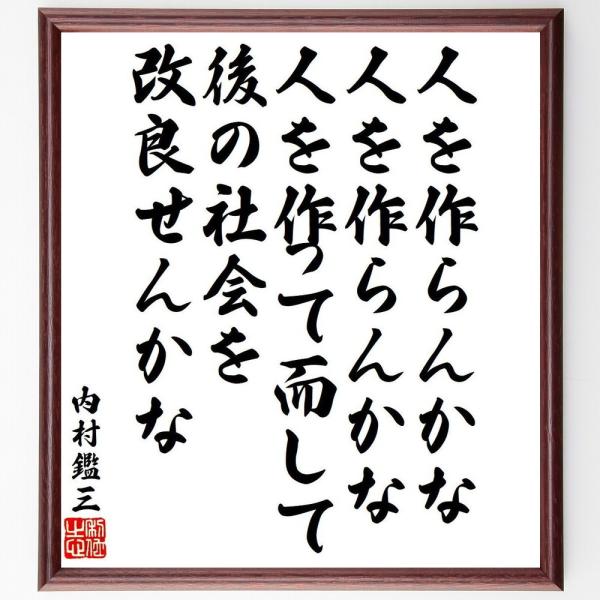 人を作らんかな
人を作らんかな
人を作って而して
後の社会を
改良せんかな
内村鑑三